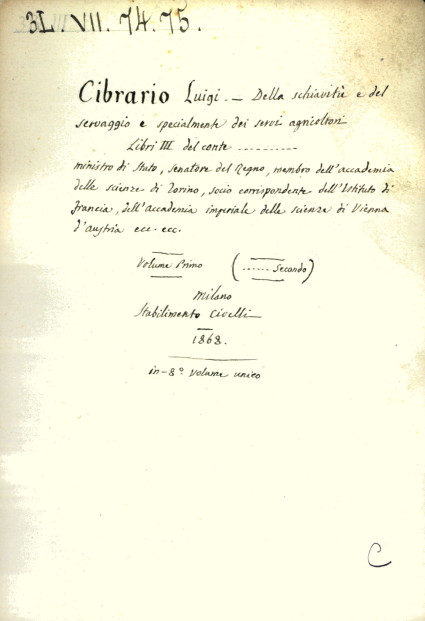 3L. VII. 74. 75.
Cibrario Luigi. — Della schiavitù e del
servaggio e specialmente dei servi agricoltori
Libri III del conte ..........
ministro di Stato, senatore del Regno, membro dell'accademia
delle scienze di Torino, socio corrispondente dell'Istituto di
Francia, dell'accademia imperiale delle scienze di Vienna
d'austria ecc. ecc.
Volume Primo (...... Secondo)
Milano
Stabilimento Civelli
1868.
in-8º volume unico
C